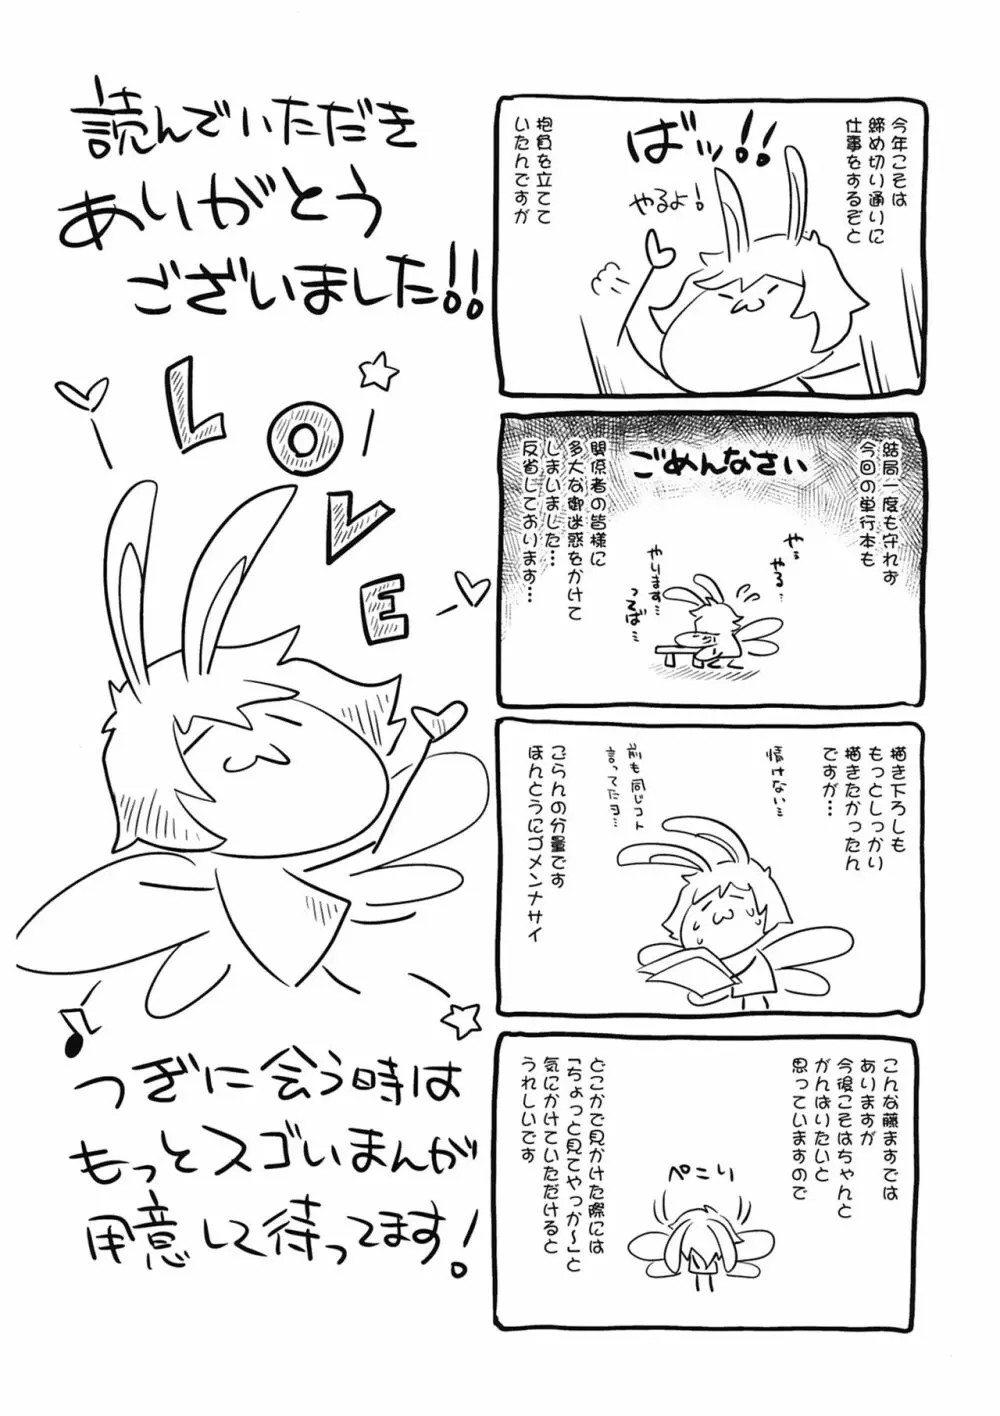 今年こそは
締め切り通りに
仕事をするぞと
ばッ!!
やるよ!
抱負を立てて
いたんですが
結局一度も守れず
今回の単行本も
ごめんなさい
関係者の皆様に
多大な御迷惑をかけて
しまいました…
反省しております…
やっ…
やる…
やります…
つるば…
描き下ろしも
もっとしっかり
描きたかったん
ですが…
情けない…
前も同じコト
言ってたヨ…
ごらんの分量です
ほんとうにゴメンナサイ
こんな藤ますでは
ありますが
今後こそはちゃんと
がんばりたいと
思っていますので
ぺこり
どこかで見かけた際には
「ちょっと見てやっか〜」と
気にかけていただけると
うれしいです
読んでいただき
ありがとう
ございました!!
LOVE
つぎに会う時は
もっとスゴいまんが
用意して待ってます!